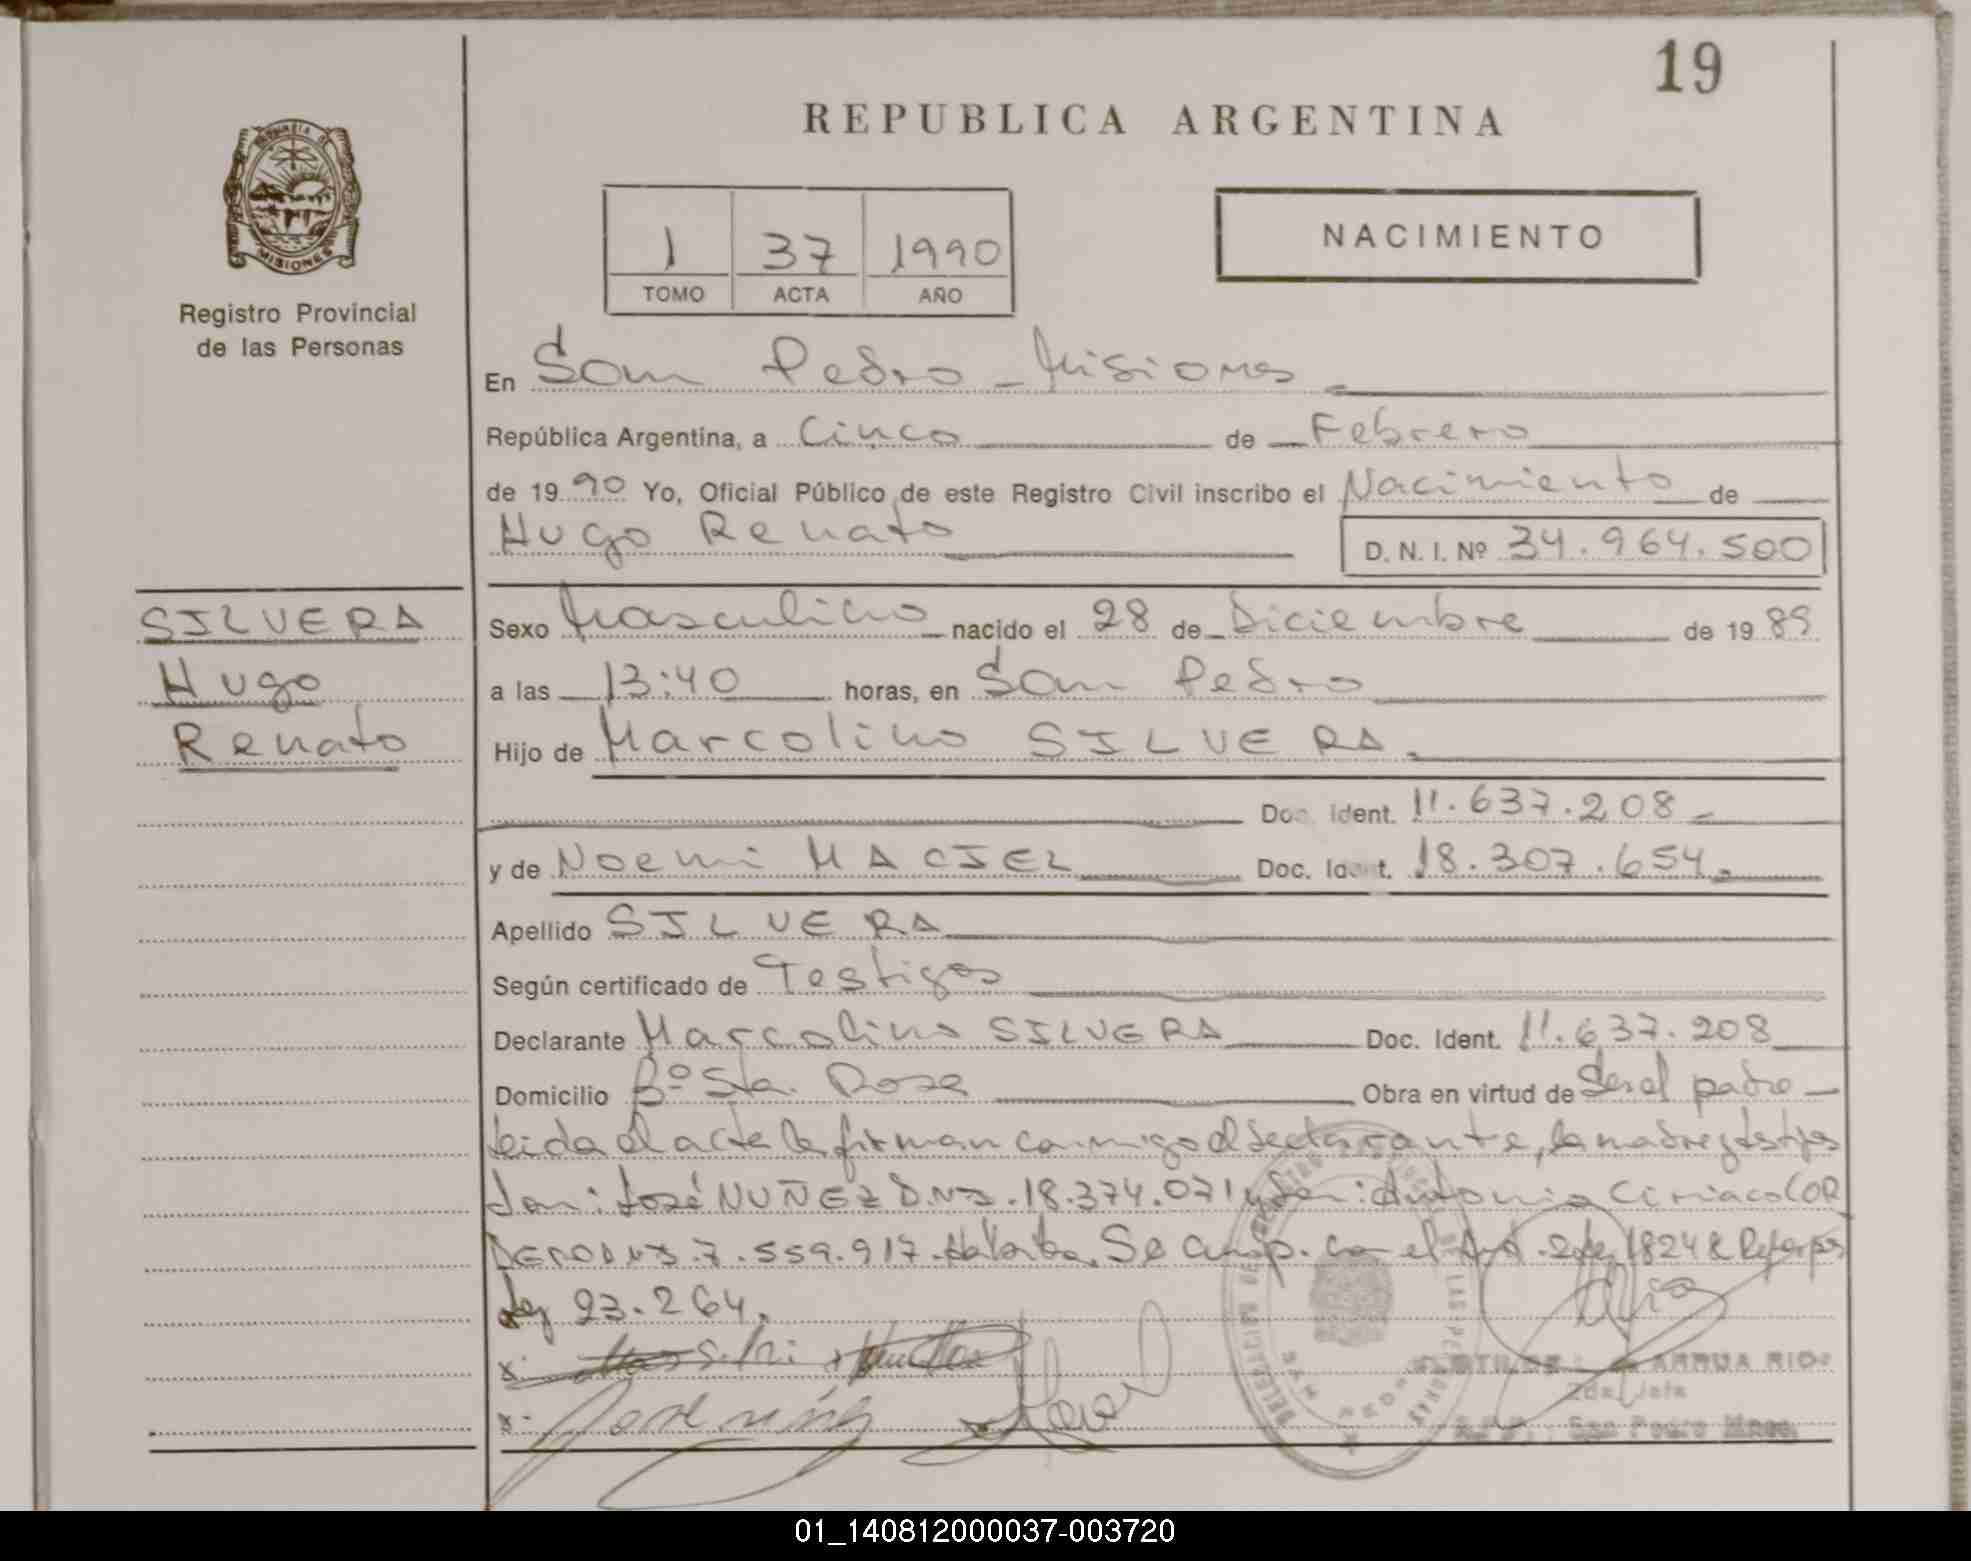 19
REPUBLICA ARGENTINA
PROVINCIA DE
MISIONES
Registro Provincial
de las Personas
1 37 1990
TOMO ACTA AÑO
NACIMIENTO
En San Pedro - Misiones
República Argentina, a Cinco de Febrero
de 1990 Yo, Oficial Público de este Registro Civil inscribo el Nacimiento de
Hugo Renato D. N. I. Nº 34.964.500
SILVERA
Hugo
Renato
Sexo Masculino nacido el 28 de Diciembre de 1989
a las 13:40 horas, en San Pedro
Hijo de Marcolino SILVERA.
Doc. Ident. 11.637.208
y de Noemi MACIEL Doc. Ident. 18.307.654
Apellido SILVERA
Según certificado de Testigos
Declarante Marcolino SILVERA Doc. Ident. 11.637.208
Domicilio Bº Sta. Rosa Obra en virtud de Ser el padre
Leida el acta la firman conmigo el declarante, la madre y testigos
don: José NUÑEZ D.N.I. 18.374.071 y don: Antonio Ciriaco COR
DERO D.N.I. 7.559.917. Se cump. con el Art. 2 Ley 18248 Ref. por
Ley 23.264.
x:
x: Jose nuñez
ARRUA RIOS
2da. Jefa
San Pedro Mnes.
01_140812000037-003720